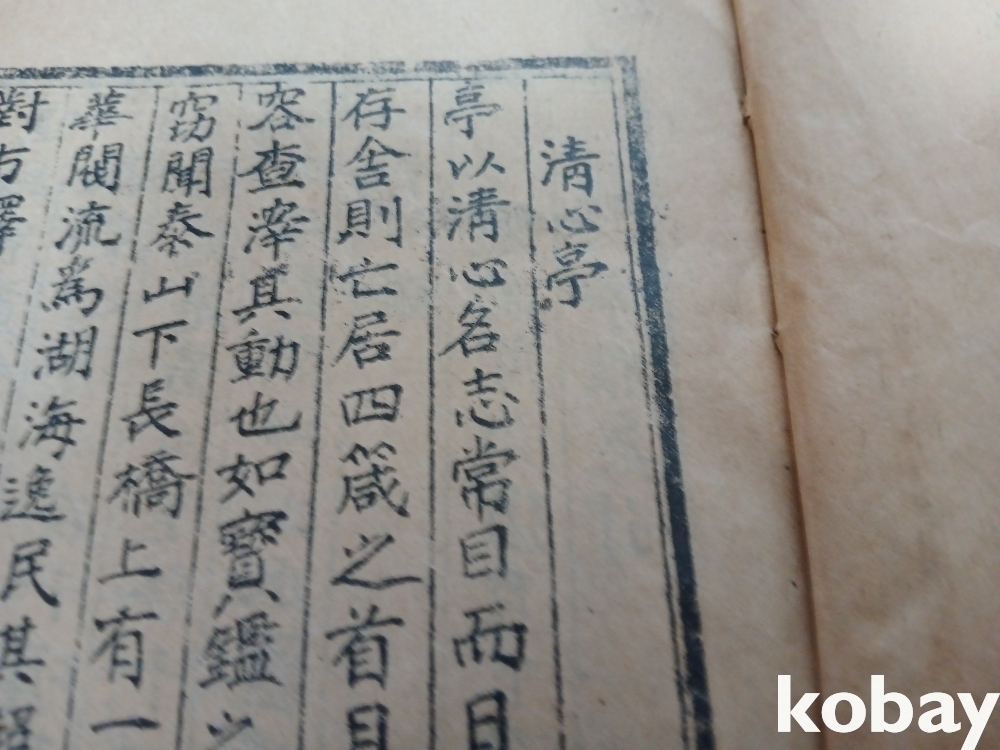 清心亭
亭以淸心名志常目而目
存舍則亡居四箴之首目
容查滓其動也如寶鑑之
窃聞泰山下長橋上有一
華閥流爲湖海逸民其
對方
kobay